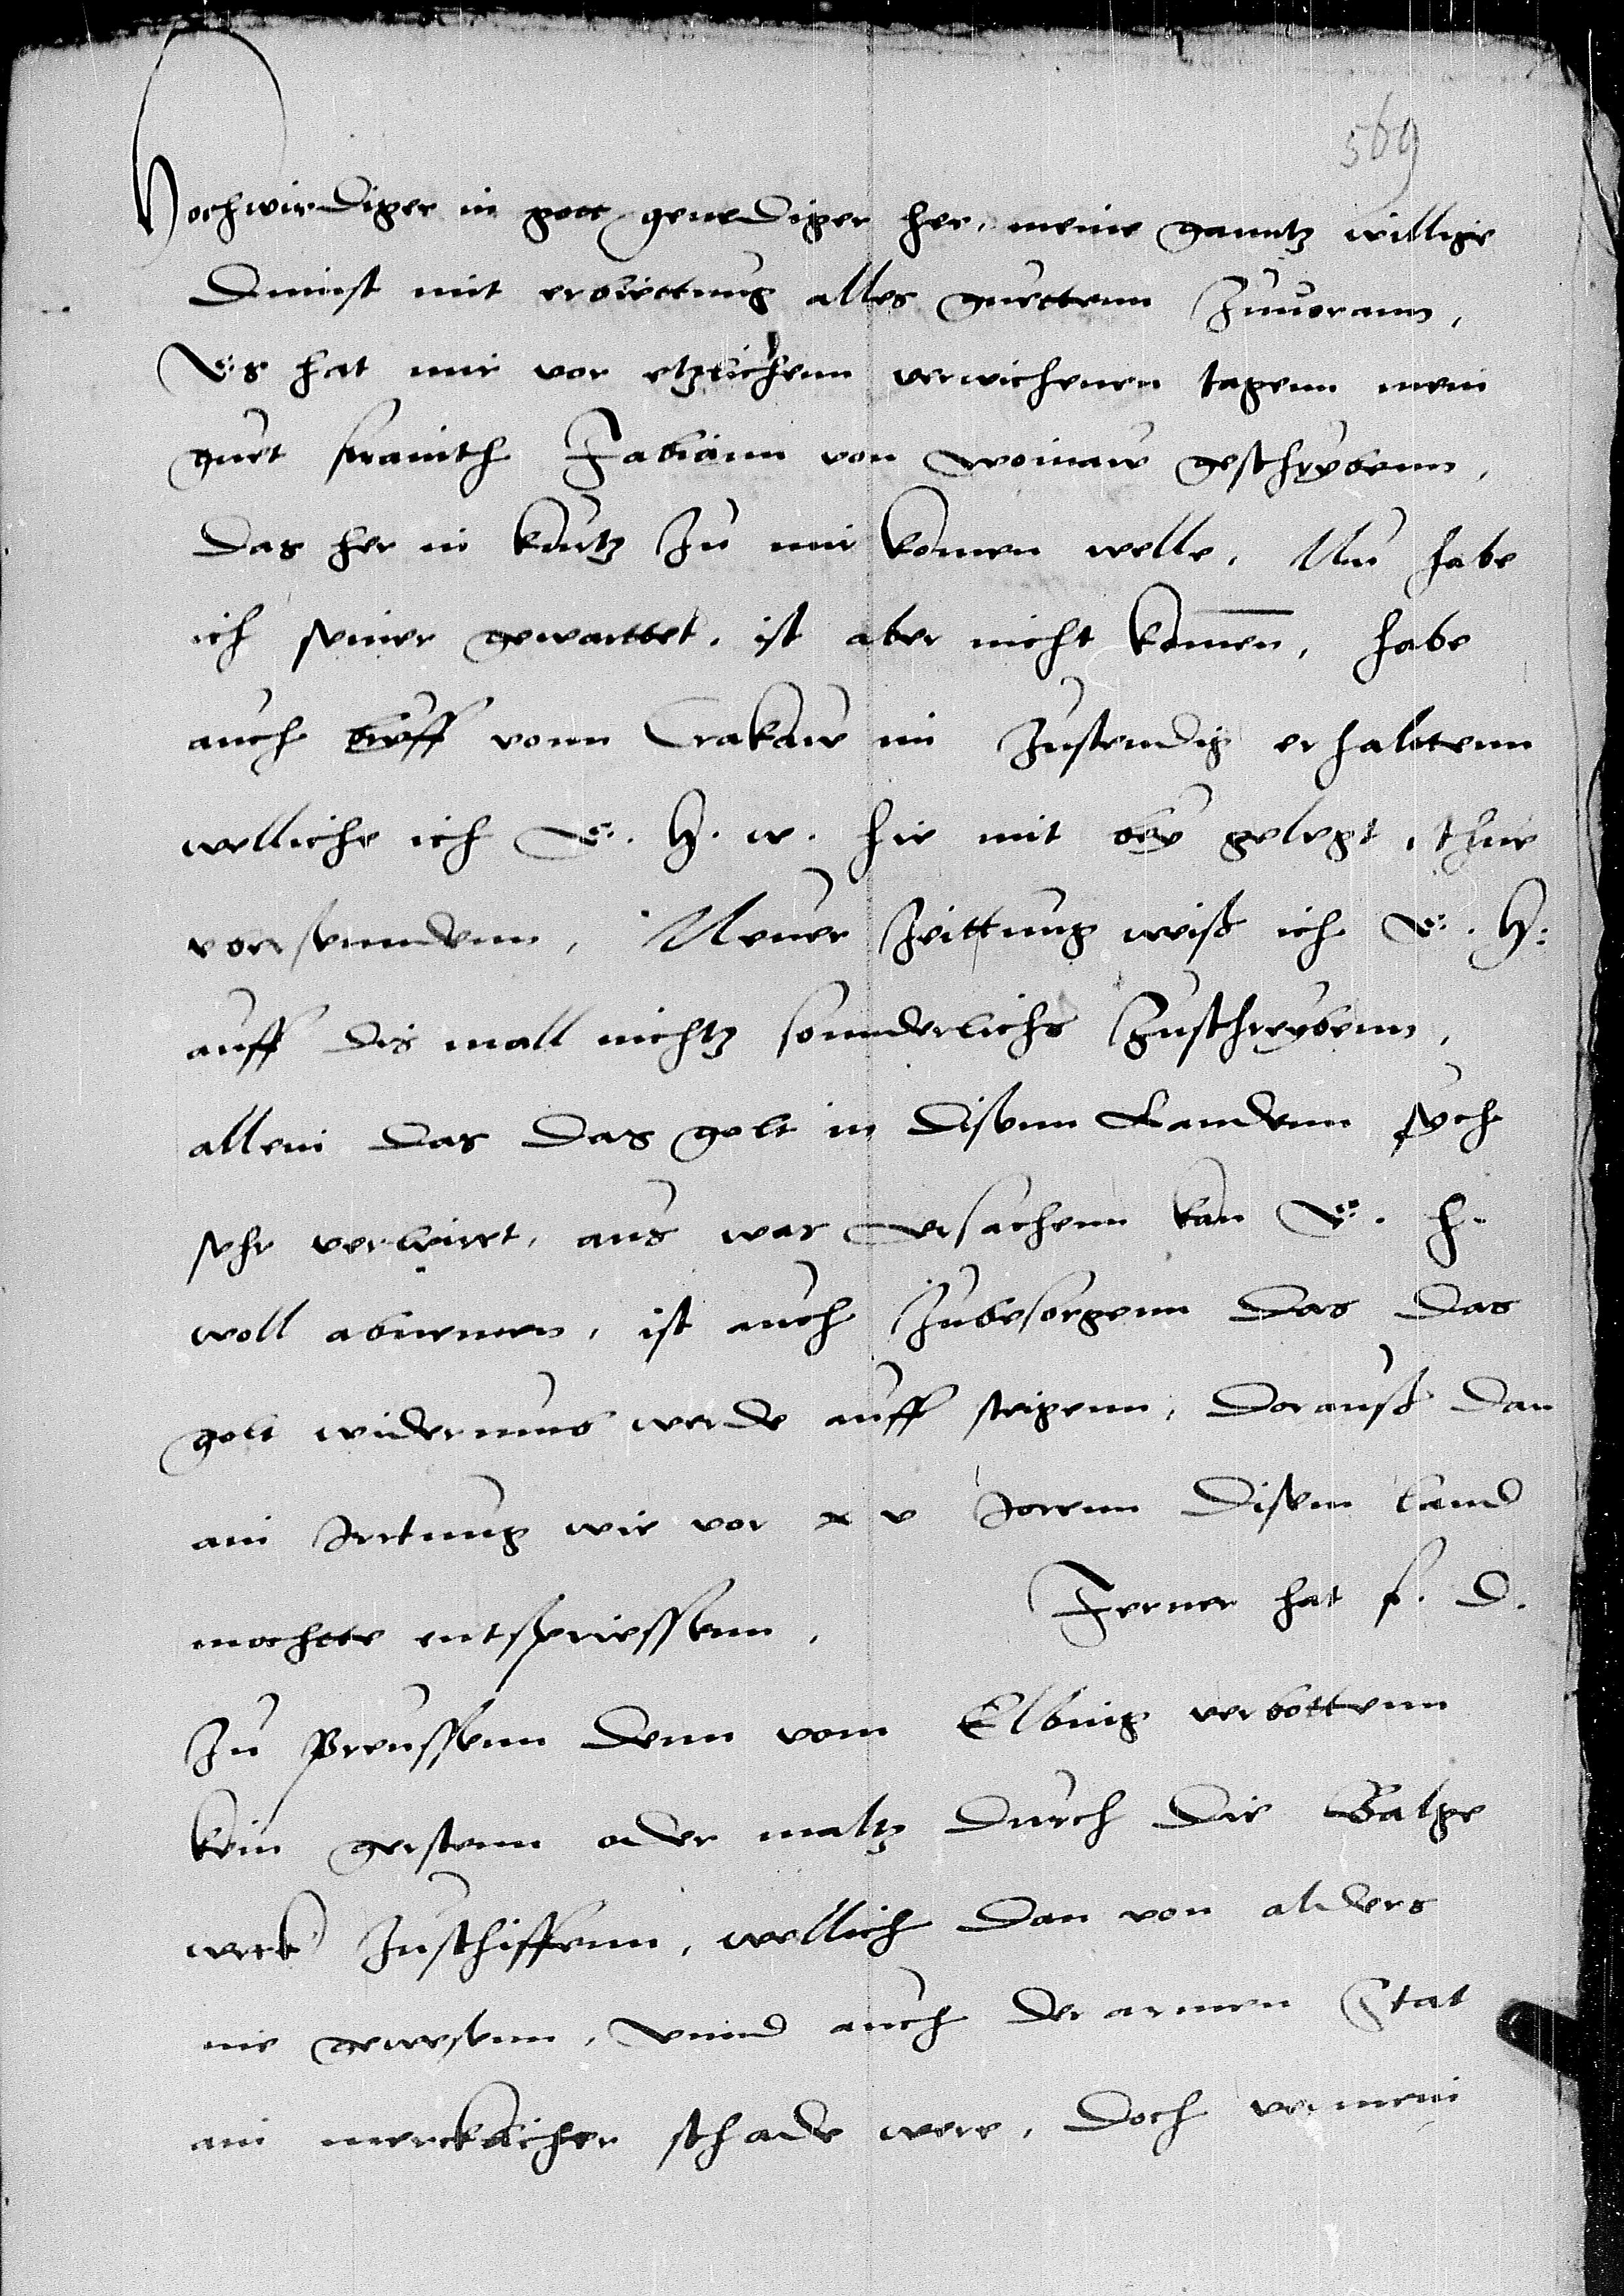 569
Hochwirdiger in gott genediger her, meine ganntz willige
Dinst mit erbiettung alles guettenn Zuuorann,
Es hat mir vor etzlichenn verwichenen tagenn mein
guet freunth Fabiann von woinaw geschrybenn,
das her in kurtz zu mir komen welle, Nu habe
ich seiner gewarttet, ist aber nicht komen, habe
auch briff vonn Crakaw im zustendig erhalttenn
welliche ich E. H. w. hie mit bey gelegt, thue
vorsenndenn, Neuer Zeittung weiß ich E. H.
auff dis mall nichtz sonnderlichs Zuschreybenn,
allein das das golt in dißenn Landenn sych
sehr verlirrt, aus was vrsachenn kan E. h.
woll abnemen, ist auch Zubesorgenn das das
golt widerumb werde auff steigenn, Dorauß dan
ain Irrtung wie vor xv Jorenn disem land
mochtte entsprießenn, Ferner hat f. D.
Zu Preussenn denn vom Elbing verbottenn
kein gerstenn oder maltz durch die Balge
weck Zuschiffenn, wellich dan von alders
nie gewesenn, vnnd auch der armen Stat
ain mercklicher schade were, Doch vermein